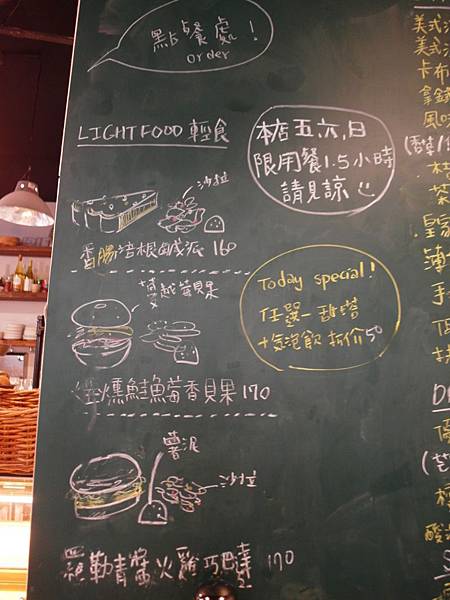 點餐處!
order
LIGHT FOOD 輕食
本店五六,日
限用餐1.5小時
請見諒
沙拉
香腸培根鹹派 160
Today special!
任選一甜塔
+氣泡飲 折价50
蔓越莓貝果
煙燻鮭魚莓香貝果 170
薯泥
沙拉
羅勒青醬火雞巧巴達 170
美式
美式
卡布
拿鐵
風味